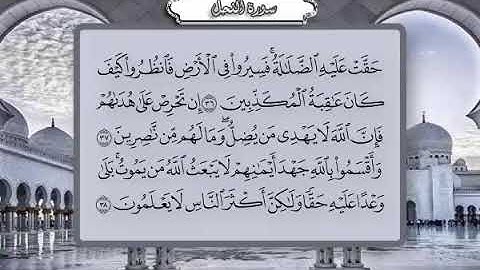 سورة النحل
حَقَّتْ عَلَيْهِ ٱلضَّلَٰلَةُ ۚ فَسِيرُوا۟ فِى ٱلْأَرْضِ فَٱنظُرُوا۟ كَيْفَ
كَانَ عَٰقِبَةُ ٱلْمُكَذِّبِينَ ٣٦ إِن تَحْرِصْ عَلَىٰ هُدَىٰهُمْ
فَإِنَّ ٱللَّهَ لَا يَهْدِى مَن يُضِلُّ ۖ وَمَا لَهُم مِّن نَّٰصِرِينَ ٣٧
وَأَقْسَمُوا۟ بِٱللَّهِ جَهْدَ أَيْمَٰنِهِمْ ۙ لَا يَبْعَثُ ٱللَّهُ مَن يَمُوتُ ۚ بَلَىٰ
وَعْدًا عَلَيْهِ حَقًّا وَلَٰكِنَّ أَكْثَرَ ٱلنَّاسِ لَا يَعْلَمُونَ ٣٨